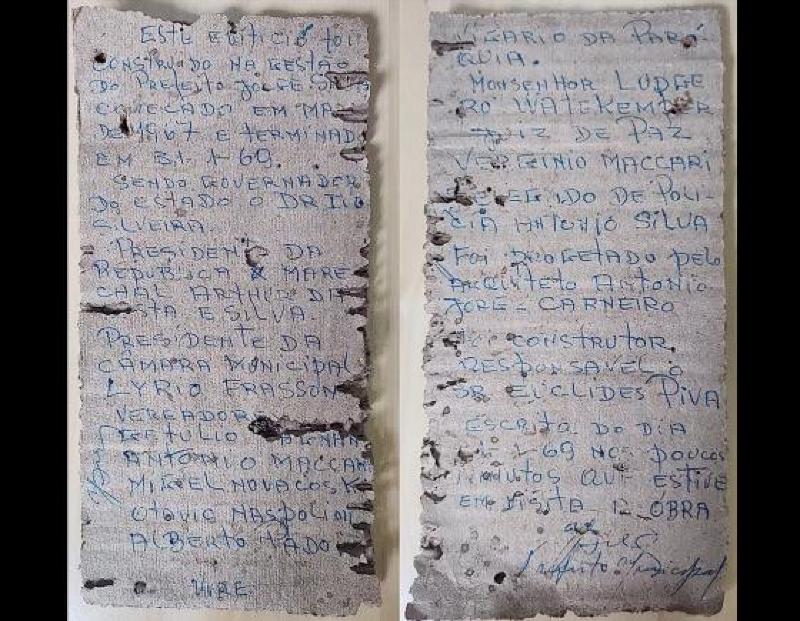 ESTE EDIFICIO FOI
CONSTRUIDO NA GESTÃO
DO PREFEITO JORGE SILVA
COMEÇADO EM MA
DE 1967 E TERMINAD
EM 31-1-69.
SENDO GOVERNADOR
DO ESTADO O DR IVO
SILVEIRA.
PRESIDENTE DA
REPUBLICA MARE-
CHAL ARTHUR DA
OSTA E SILVA.
PRESIDENTE DA
CÂMARA MUNICIPAL
LYRIO FRASSON
VEREADOR
GETULIO
ANTONIO MACCARI
MIGUEL NOVACOSK
OTAVIO NASPOLINI
ALBERTO
VIRE
VIGARIO DA PARÓ-
QUIA.
MONSENHOR LUDGE
RO WATEKEMPER
JUIZ DE PAZ
VERGINIO MACCARI
DELEGADO DE POLI-
CIA ANTONIO SILVA
FOI PROGETADO PELO
ARQUITETO ANTONIO
JORGE CARNEIRO
FOI CONSTRUTOR
RESPONSAVEL O
SR EUCLIDES PIVA
ESCRITO DO DIA
1-69 NOS POUCOS
MINUTOS QUE ESTIVE
EM VISITA OBRA
Prefeito Municipal